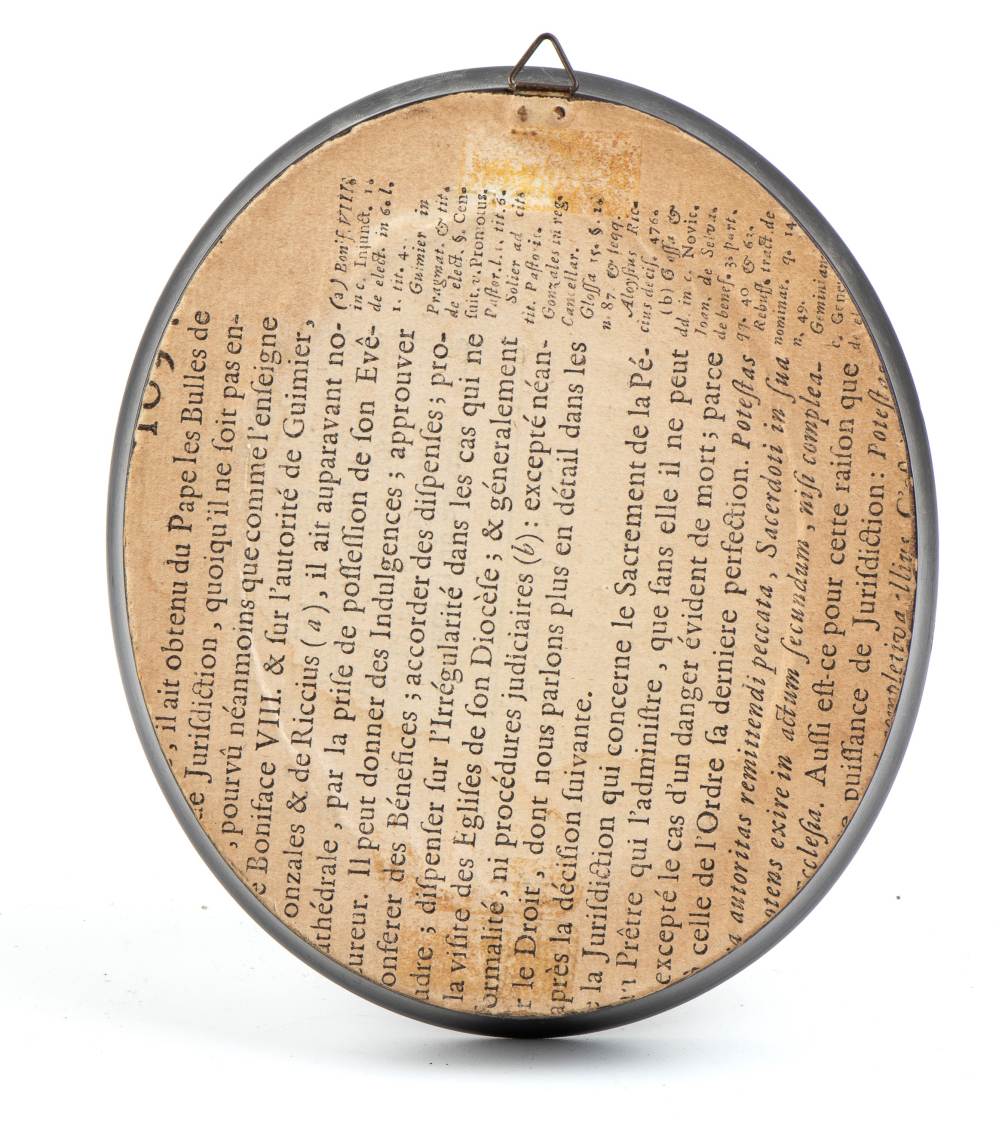 , il ait obtenu du Pape les Bulles de
de Juriſdiction, quoiqu'il ne ſoit pas en-
, pourvû néanmoins que comme l'enſeigne
Boniface VIII. & ſur l'autorité de Guimier,
onzales & de Riccius (a), il ait auparavant no-
athédrale, par la priſe de poſſeſſion de ſon Evê-
ureur. Il peut donner des Indulgences; approuver
onferer des Bénéfices; accorder des diſpenſes; pro-
udre; diſpenſer ſur l'Irrégularité dans les cas qui ne
la viſite des Egliſes de ſon Diocèſe; & généralement
ormalité, ni procédures judiciaires (b): excepté néan-
r le Droit, dont nous parlons plus en détail dans les
après la déciſion ſuivante.
la Juriſdiction qui concerne le Sacrement de la Pé-
Prêtre qui l'adminiſtre, que ſans elle il ne peut
excepté le cas d'un danger évident de mort; parce
celle de l'Ordre ſa derniere perfection. Poteſtas
autoritas remittendi peccata, Sacerdoti in ſua
otens exire in actum ſecundum, niſi complea-
Eccleſia. Auſſi eſt-ce pour cette raiſon que
puiſſance de Juriſdiction: Poteſtas
completiva illius
(a) Bonif. VIII.
in c. Injunct. 1.
de elect. in 6. l.
1. tit. 4.
Guimier in
Pragmat. & tit.
de elect. §. Con-
ſuit. v. Promotus.
Paſtor. l. 1. tit. 6.
Solier ad cit.
tit. Paſtoris.
Gonzales in reg.
Cancellar.
Gloſſa 15. §. 1.
n. 87 & ſeqq.
Aloyſius Ric-
cius deciſ. 476.
(b) Gloſſ. &
dd. in c. Novic.
Joan. de Selva.
de beneſ. 3. part.
qq. 40 & 62.
Rebuff. tract. de
nominat. q. 14.
n. 49.
Geminian
c. Gene